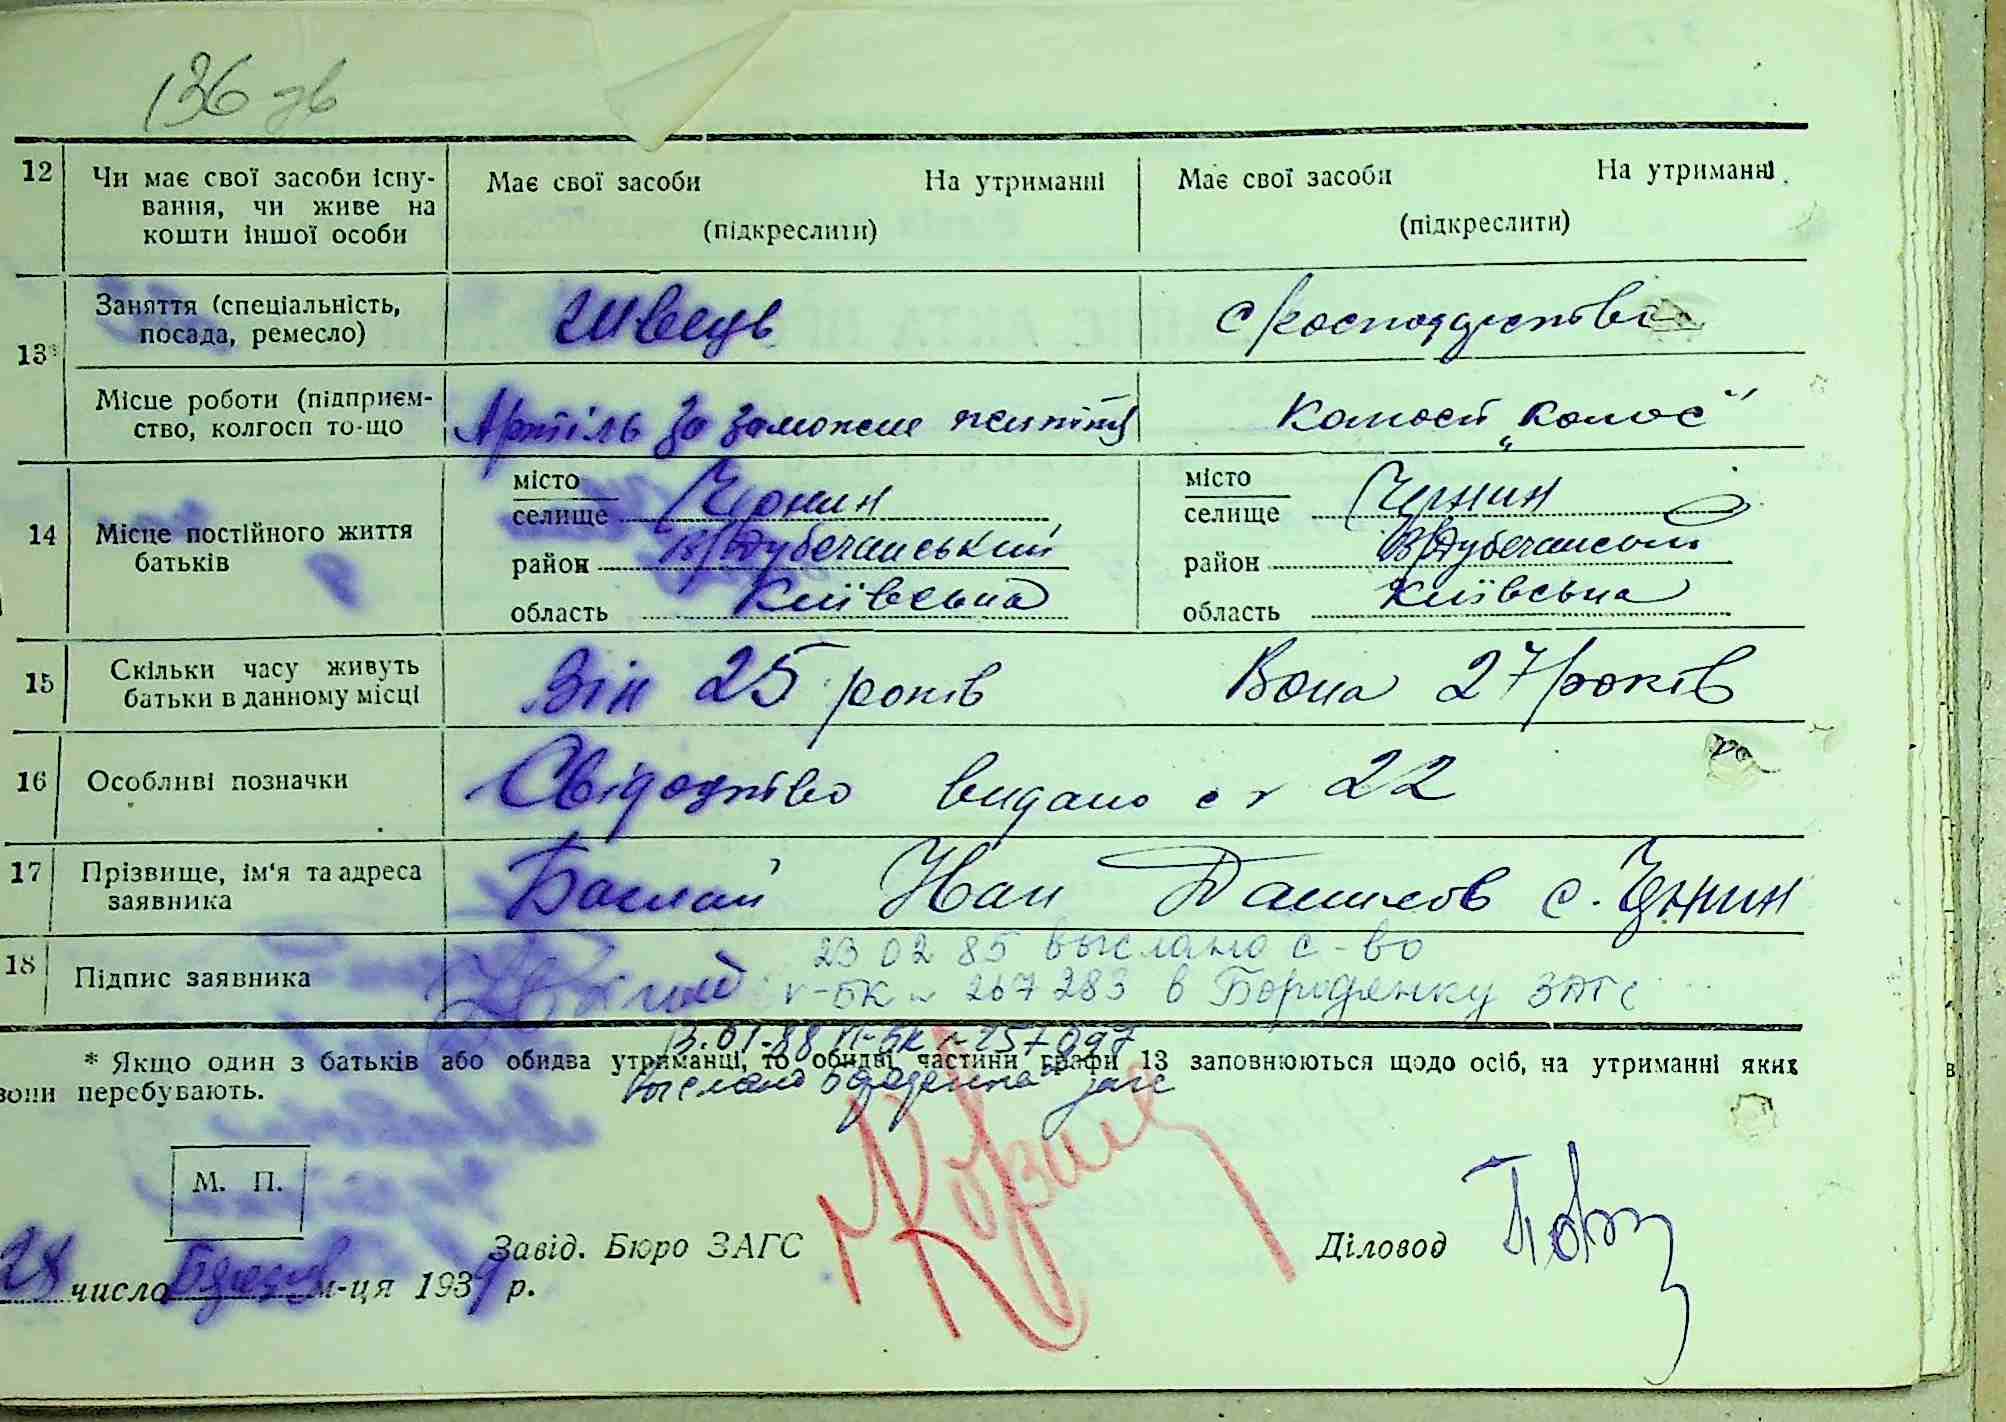 136 зв
12 Чи має свої засоби існу- Має свої засоби На утриманні Має свої засоби На утриманні
вання, чи живе на (підкреслити) (підкреслити)
кошти іншої особи
13* Заняття (спеціальність, Швець с/господарстві
посада, ремесло)
Місце роботи (підприєм- Артіль За заможне життя Колгосп „Колос"
ство, колгосп то-що
14 Місце постійного життя батьків
місто Чернин місто Чернин
селище селище
район В/Дубечанський район В/Дубечанськ
область Київська область Київська
15 Скільки часу живуть Він 25 років Вона 27 років
батьки в данному місці
16 Особливі позначки Свідоцтво видано 22
17 Прізвище, ім'я та адреса Баглай Іван Данилов с. Чернин
заявника
18 Підпис заявника
23 02 85 выслано с-во
V-БК № 267283 в Бородянку ЗАГС
13.01.88 П-БК № 257097
* Якщо один з батьків або обидва утриманці, то обидві частини графи 13 заповнюються щодо осіб, на утриманні яких
вони перебувають.
выслано загс
М. П.
Завід. Бюро ЗАГС Діловод
28 число м-ця 1939 р.
в